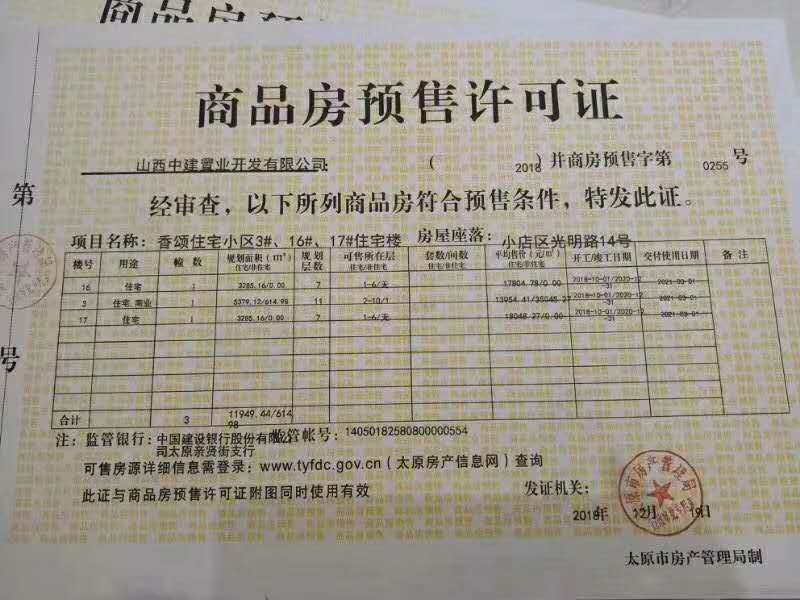 商品房预售许可证
山西中建置业开发有限公司 （ 2018 ）并商房预售字第 0255 号
经审查，以下所列商品房符合预售条件，特发此证。
项目名称：香颂住宅小区3#、16#、17#住宅楼 房屋座落：小店区光明路14号
楼号 用途 幢数 规划面积（㎡）住宅/非住宅 规划层数 可售所在层 住宅/非住宅 套数/间数 住宅/非住宅 平均售价（元/㎡）住宅/非住宅 开工/竣工日期 交付使用日期 备注
16 住宅 1 3285.16/0.00 7 1-6/无 17804.78/0.00 2018-10-01/2020-12-31 2021-03-01
3 住宅,商业 1 5379.12/614.98 11 2-10/1 13954.41/35045.27 2018-10-01/2020-12-31 2021-03-01
17 住宅 1 3285.16/0.00 7 1-6/无 18048.27/0.00 2018-10-01/2020-12-31 2021-03-01
合计 3 11949.44/614.98
注：监管银行：中国建设银行股份有限公司太原亲贤街支行 监管帐号：14050182580800000554
可售房源详细信息需登录：www.tyfdc.gov.cn（太原房产信息网）查询
此证与商品房预售许可证附图同时使用有效
发证机关：
2018年 12月 19日
太原市房产管理局制
第
号